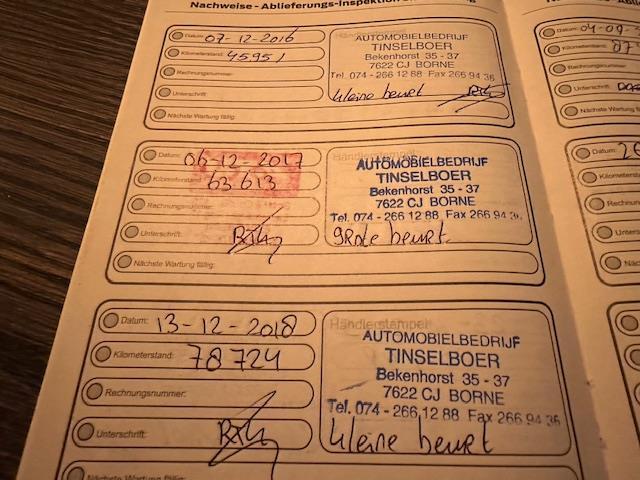 Nachweise - Ablieferungs-Inspektion
Datum: 07-12-2016
Kilometerstand: 45951
Rechnungsnummer:
Unterschrift:
Nächste Wartung fällig:
AUTOMOBIELBEDRIJF
TINSELBOER
Bekenhorst 35 - 37
7622 CJ BORNE
Tel. 074 - 266 12 88 Fax 266 94 36
kleine beurt
Datum: 06-12-2017
Kilometerstand: 63 613
Rechnungsnummer:
Unterschrift:
Nächste Wartung fällig:
AUTOMOBIELBEDRIJF
TINSELBOER
Bekenhorst 35 - 37
7622 CJ BORNE
Tel. 074 - 266 12 88 Fax 266 94 36
grote beurt.
Datum: 13-12-2018
Kilometerstand: 78 724
Rechnungsnummer:
Unterschrift:
Nächste Wartung fällig:
Händlerstempel:
AUTOMOBIELBEDRIJF
TINSELBOER
Bekenhorst 35 - 37
7622 CJ BORNE
Tel. 074 - 266 12 88 Fax 266 94 36
kleine beurt
Datum: 04-09-
Kilometerstand: 87
Rechnungsnummer:
Unterschrift:
Nächste Wartung
Datum: 20
Kilometerst
Rechnun
Unters